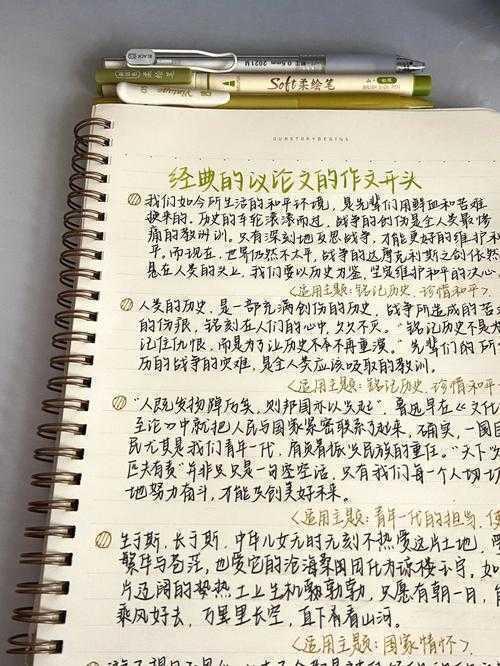 BLACK
0.5mm 2021M
Soft柔绘笔
OURSTORYBEGINS
经典的议论文的作文开头
我们如今所生活的和平环境,是先辈们用鲜血和苦难
换来的。历史的车轮滚滚而过,战争的创伤是全人类最惨
痛的教训。只有深刻地反思战争,才能更好的维护和
平。而现在,世界仍然不太平,战争的达摩克利斯之剑依然
悬在人类的头上,我们要以历史为鉴,坚定维护和平的决心。
<适用主题:铭记历史,珍惜和平>
人类的历史,是一部充满创伤的历史,战争所造成的苦
的伤痕,铭刻在人们的心中,久久不灭。“铭记历史不是为
记住仇恨,而是为了让历史不再重演。”先辈们的所
历的战争的灾难,是全人类应该吸取的教训。
<适用主题:铭记历史,珍惜和平
“人既发扬踔厉矣,则邦国亦以兴起”,鲁迅早在《文化
至论》中就把人民与国家紧密联系了起来,确实,一国
民尤其是我们青年一代,肩负着振兴民族的重任。“天下
匹夫有责”并非只是一句空空话,只有我们每一个人切切
地努力奋斗,才能共创美好未来。
<适用主题:青年一代的担当,
生于斯,长于斯,中华儿女无时无刻不热爱这片土地,
繁华与苍茫,也爱它的沧海桑田
片辽阔的热土上生机勃勃,只愿有朝一日,
乘风好去,万里长空,直下看山河。
<适用主题:国家情怀>